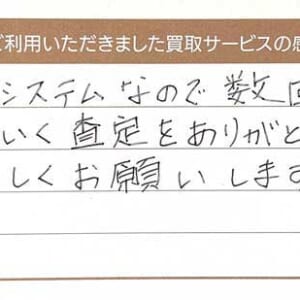 ご利用いただきました買取サービスの感
システムなので数回
いく査定をありがと
しくお願いします